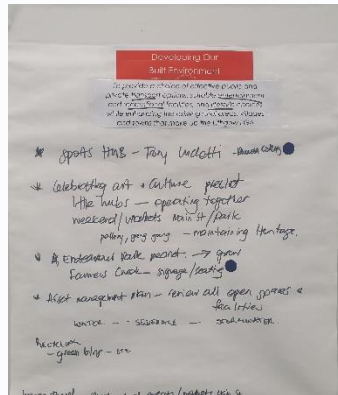 Developing Our
Built Environment
To provide a choice of effective public and
private transport options, suitable entertainment
and recreational facilities, and lifestyle choices
while enhancing the existing rural areas, villages
and towns that make up the Lithgow LGA.
* Sports HUB - Tony Luchetti
* Celebrating art + Culture precinct
little hubs - operating together
weekend/Markets Main St/Park
pottery, - maintaining Heritage.
* Endeavour Park → grow
Farmers Creek - signage/seating
* Asset management Plan - review all open spaces &
facilities
WATER - - SEWERAGE - STORMWATER
RECYCLING
- green bins -